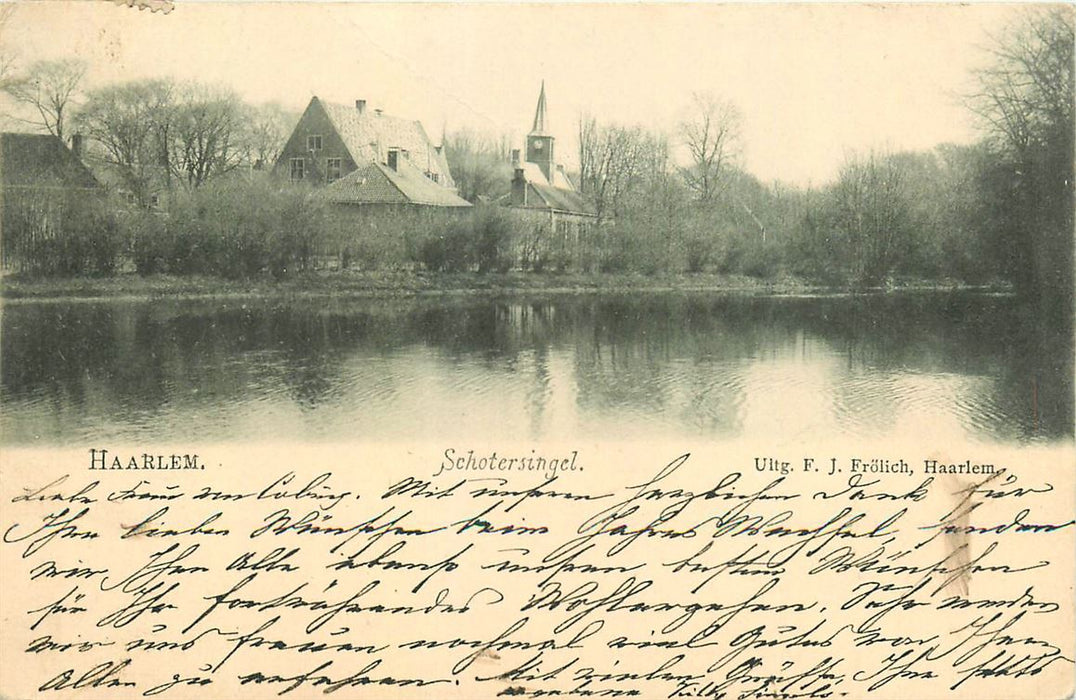 HAARLEM. Schotersingel. Uitg. F. J. Frölich, Haarlem.
Liebe Frau von Coburg. Mit unseren herzlichen Dank für
Ihre lieben Wünsche beim Jahres Wechsel, senden
wir Ihnen Alle ebenso unsere besten Wünsche
für Ihr fortwährendes Wohlergehen. Sehr werden
wir uns freuen nochmal viel Gutes von Ihnen
Allen zu erfahren. Mit vielen Grüssen, Ihre stets
ergebene